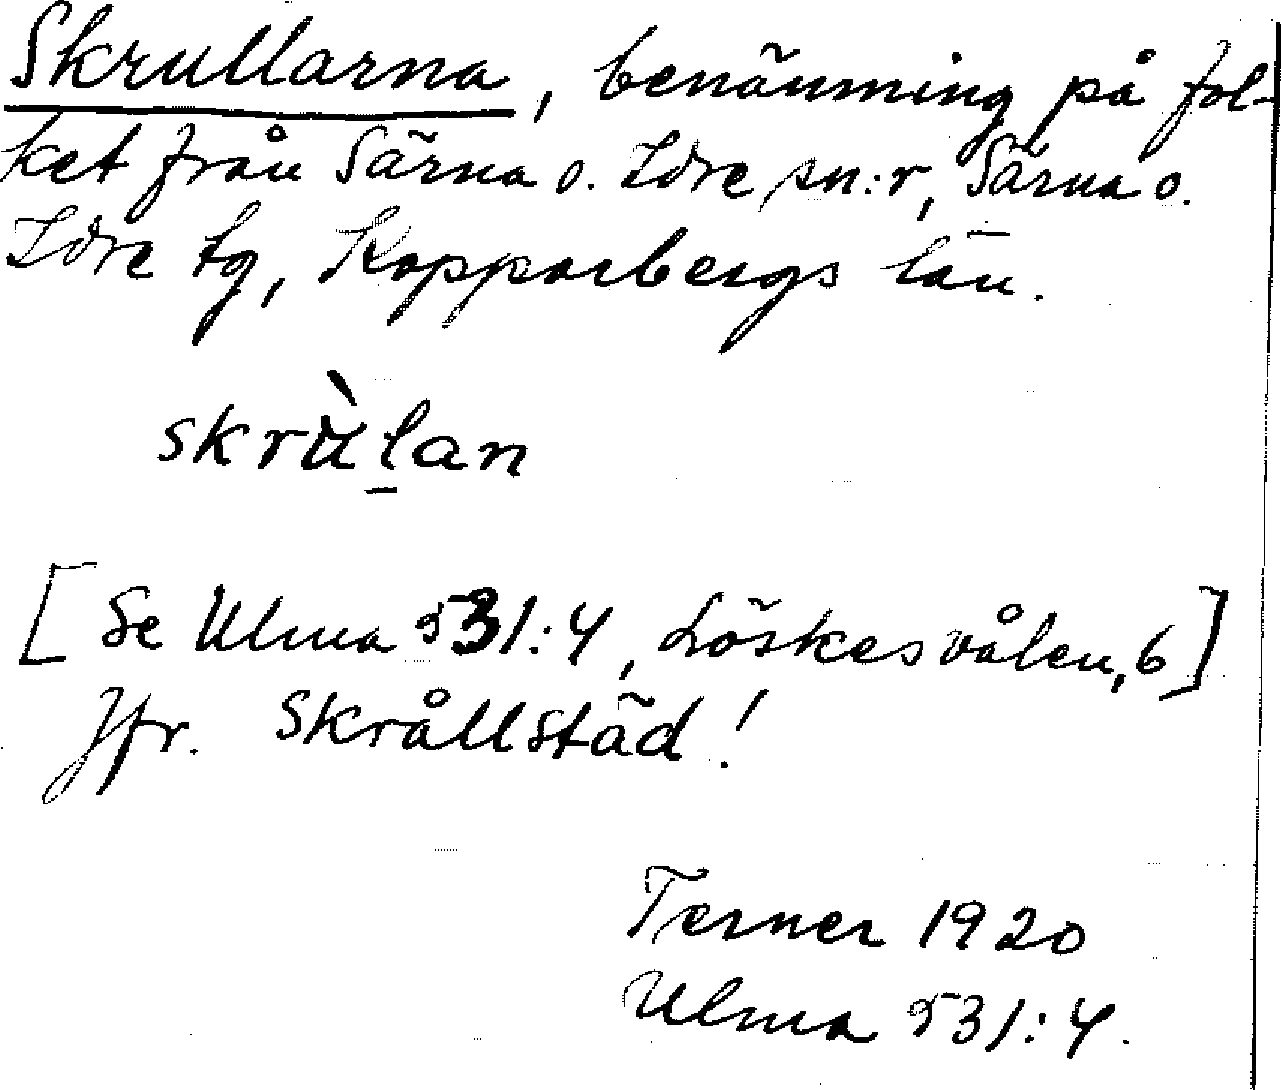 Skrullarna, benämning på fol-
ket från Särna o. Idre sn:r, Särna o.
Idre tg, Kopparbergs län.
skrùlan
[Se Ulma 531:4, Löskesvålen, 6]
Jfr. Skrållstäd!
Terner 1920
Ulma 531:4.